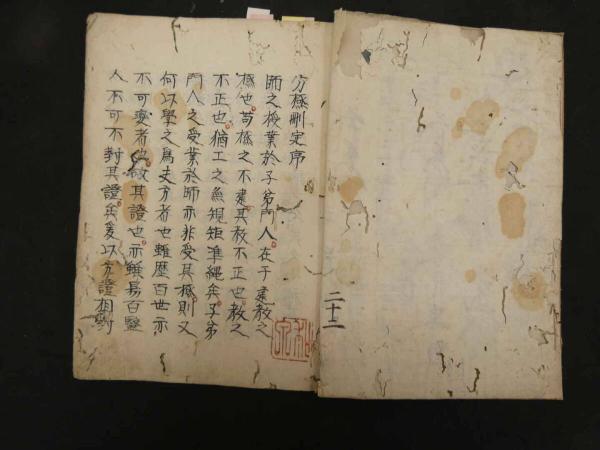 二十二
方極刪定序
師之授業於子弟門人在于建教之
極也苟極之不建其教不正也教之
不正也猶工之無規矩準繩矣子弟
門人之受業於師亦非受其極則又
何以學之爲夫方者也雖歷百世亦
不可變者也故其證也亦雖易百毉
人不可不對其證矣爰以方證相對